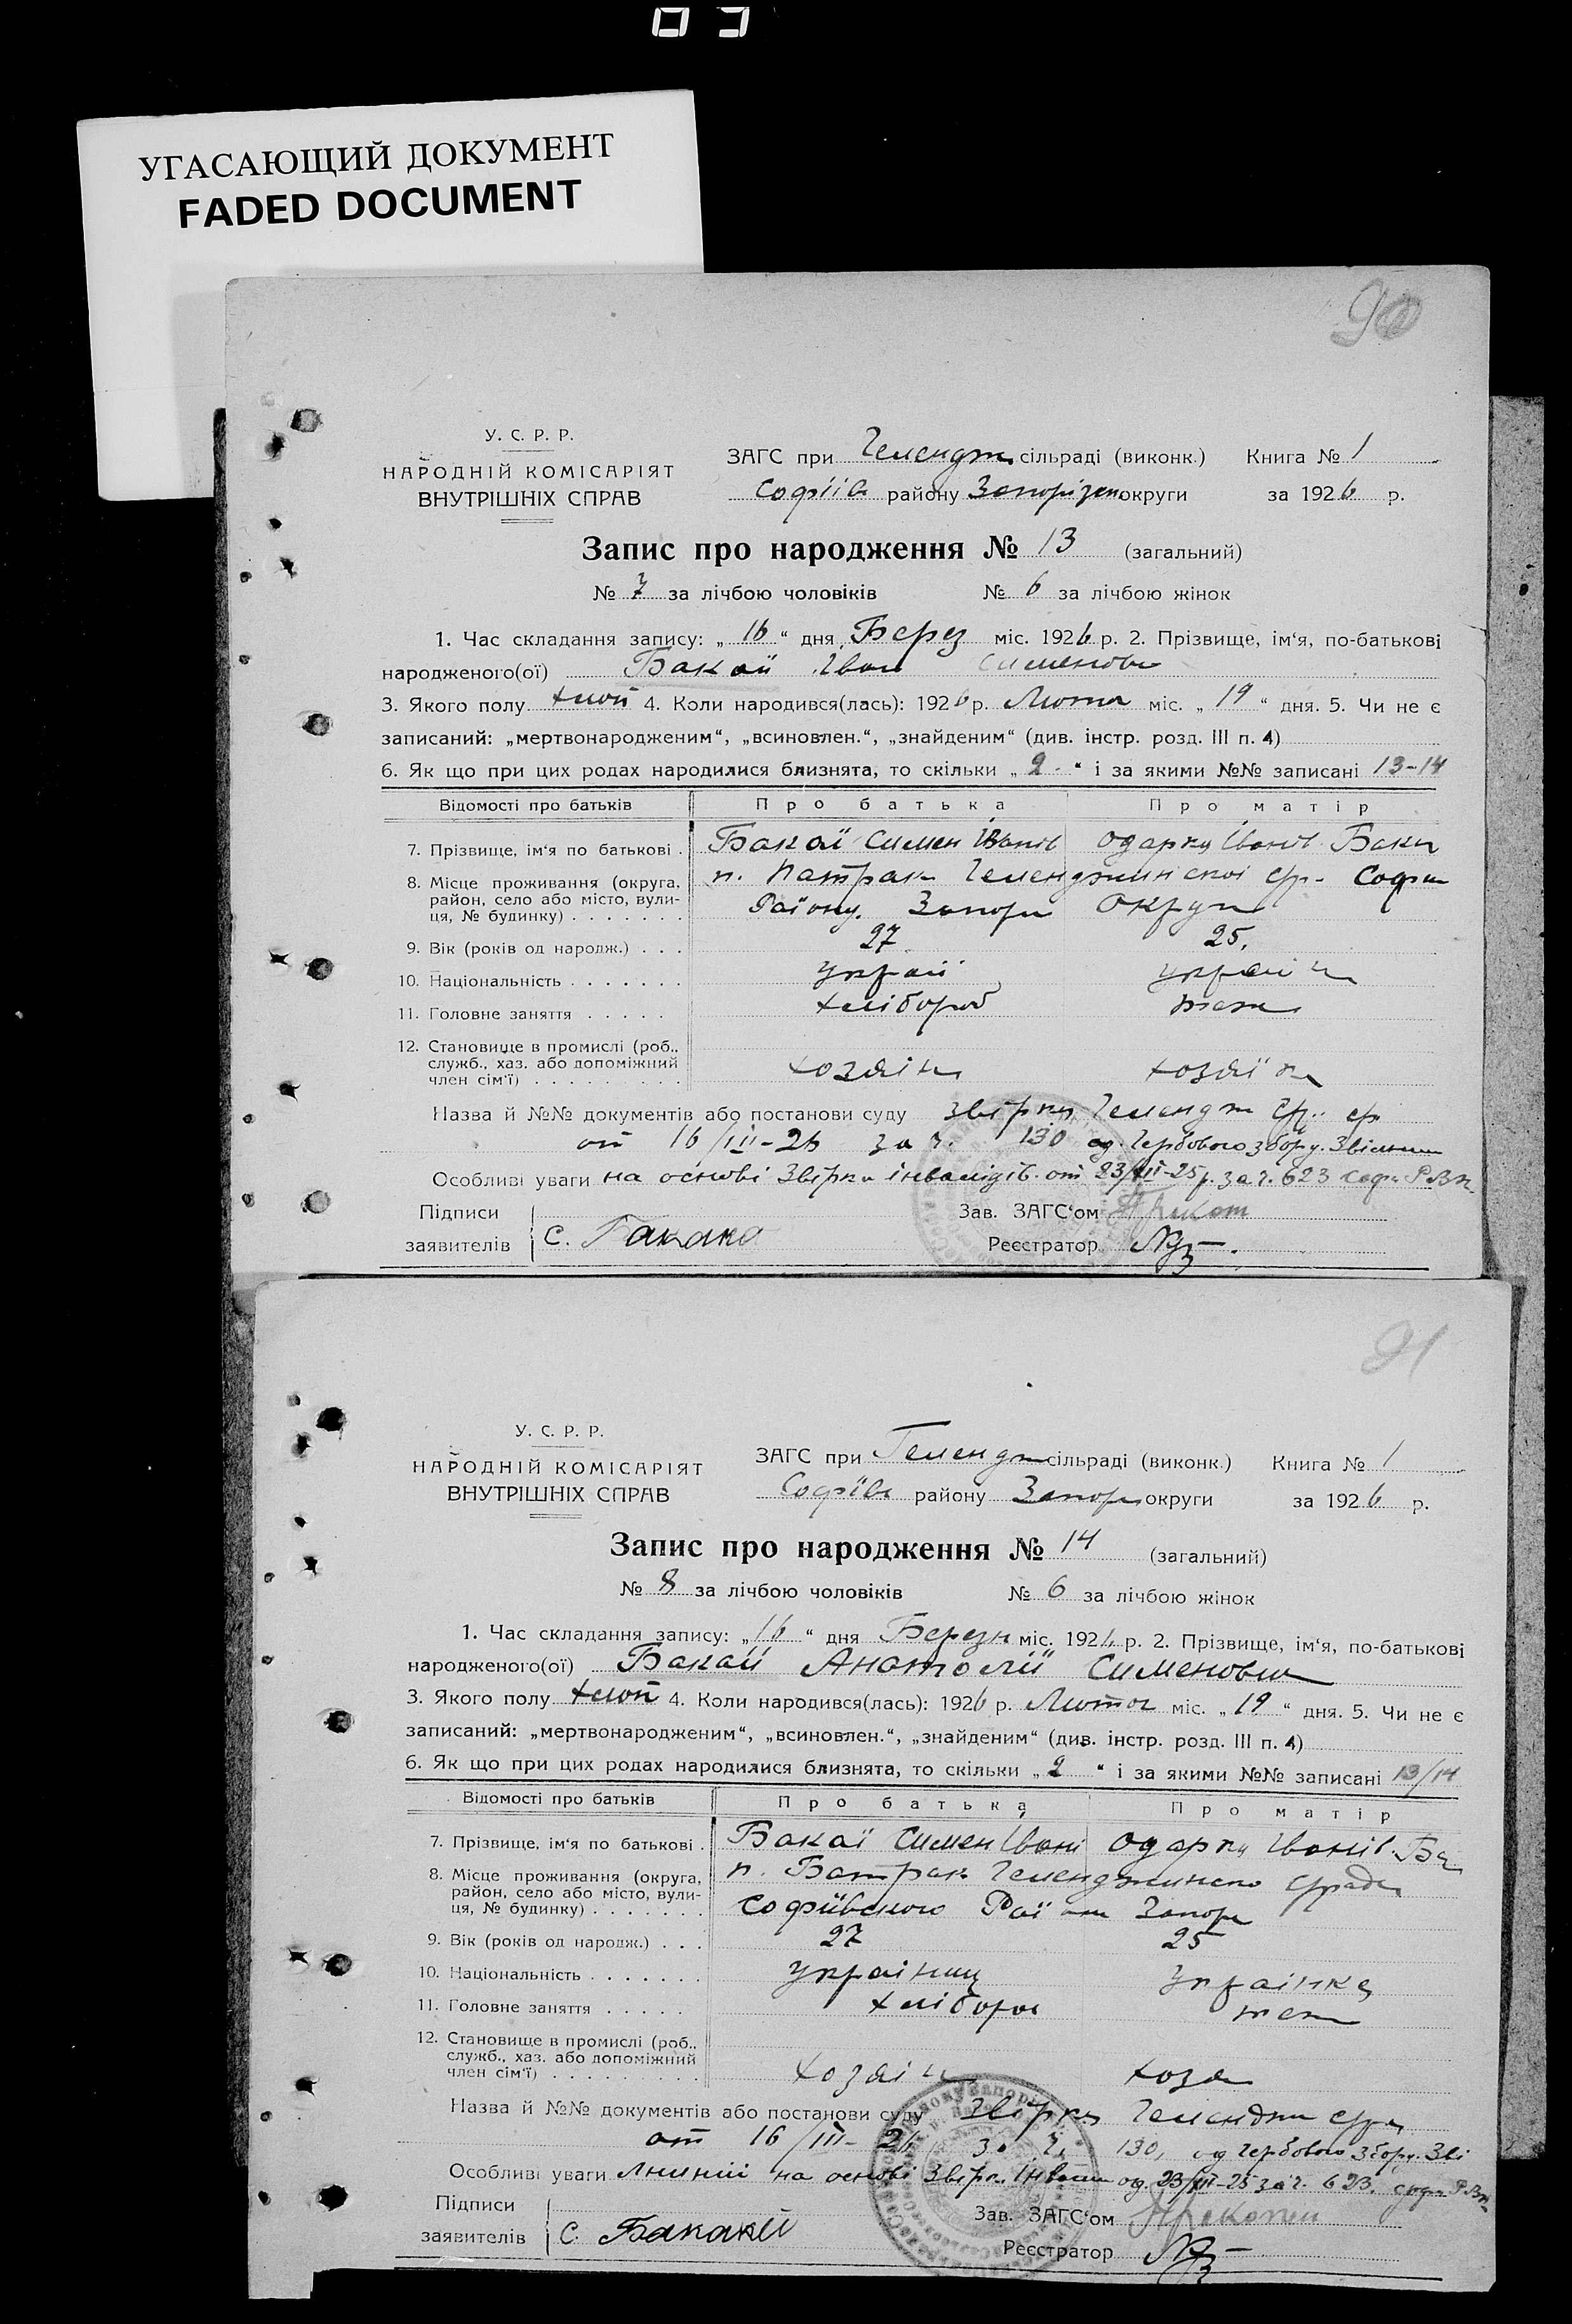 УГАСАЮЩИЙ ДОКУМЕНТ
FADED DOCUMENT
90
У. С. Р. Р.
НАРОДНІЙ КОМІСАРІЯТ
ВНУТРІШНІХ СПРАВ
ЗАГС при Гелендж сільраді (виконк.) Книга № 1
Софіїв району округи за 1926 р.
Запис про народження № 13 (загальний)
№ 7 за лічбою чоловіків № 6 за лічбою жінок
1. Час складання запису: „ 16 “ дня Берез міс. 1926 р. 2. Прізвище, ім‘я, по-батькові
народженого(ої) Бакай Іван Сименов
3. Якого полу хлоп 4. Коли народився(лась): 1926 р. Лютого міс. „ 19 “ дня. 5. Чи не є
записаний: „мертвонародженим“, „всиновлен.“, „знайденим“ (див. інстр. розд. III п. 4)
6. Як що при цих родах народилися близнята, то скільки „ 2 “ і за якими №№ записані 13-14
Відомості про батьків Про батька Про матір
7. Прізвище, ім‘я по батькові . Бакай Симен Іванів Одарка Іванів Бака
8. Місце проживання (округа, район, село або місто, вулиця, № будинку) . . . . . . . п. Софіїв
Району. Запор Округи
9. Вік (років од народж.) . . . 27 25.
10. Національність . . . . . . . україн
11. Головне заняття . . . . . хлібороб теж
12. Становище в промислі (роб., служб., хаз. або допоміжний член сім‘ї) . . . . . . . . . хозяїн хозяїн
Назва й №№ документів або постанови суду Звірка Гелендж
от 16/III-26 за ч. 130 од. Гербового збору. Звільнен
Особливі уваги на основі Звірки інвалідів от 23/XII-25 р. за ч. 623 Софи РВК
Підписи
заявителів С. Бакай
Зав. ЗАГС‘ом
Реєстратор
91
У. С. Р. Р.
НАРОДНІЙ КОМІСАРІЯТ
ВНУТРІШНІХ СПРАВ
ЗАГС при Гелендж сільраді (виконк.) Книга № 1
Софіїв району Запор округи за 1926 р.
Запис про народження № 14 (загальний)
№ 8 за лічбою чоловіків № 6 за лічбою жінок
1. Час складання запису: „ 16 “ дня Березн міс. 1926 р. 2. Прізвище, ім‘я, по-батькові
народженого(ої) Бакай Анатолій Сименович
3. Якого полу хлоп 4. Коли народився(лась): 1926 р. Лютог міс. „ 19 “ дня. 5. Чи не є
записаний: „мертвонародженим“, „всиновлен.“, „знайденим“ (див. інстр. розд. III п. 4)
6. Як що при цих родах народилися близнята, то скільки „ 2 “ і за якими №№ записані 13/14
Відомості про батьків Про батька Про матір
7. Прізвище, ім‘я по батькові . Бакай Симен Івані Одарка Іванів. Ба
8. Місце проживання (округа, район, село або місто, вулиця, № будинку) . . . . . . . п. Батрак
Софіївського Запор
9. Вік (років од народж.) . . . 27 25
10. Національність . . . . . . . українець українка
11. Головне заняття . . . . . хлібороб теж
12. Становище в промислі (роб., служб., хаз. або допоміжний член сім‘ї) . . . . . . . . . хозяїн хозя
Назва й №№ документів або постанови суду Звірка Гелендж
от 16/III-26 за ч. 130, од Гербового збору. Зві
Особливі уваги льнений на основі Звірк. Інвалід од. 23/XII-25 за ч. 623. РВК
Підписи
заявителів С. Бакай
Зав. ЗАГС‘ом
Реєстратор